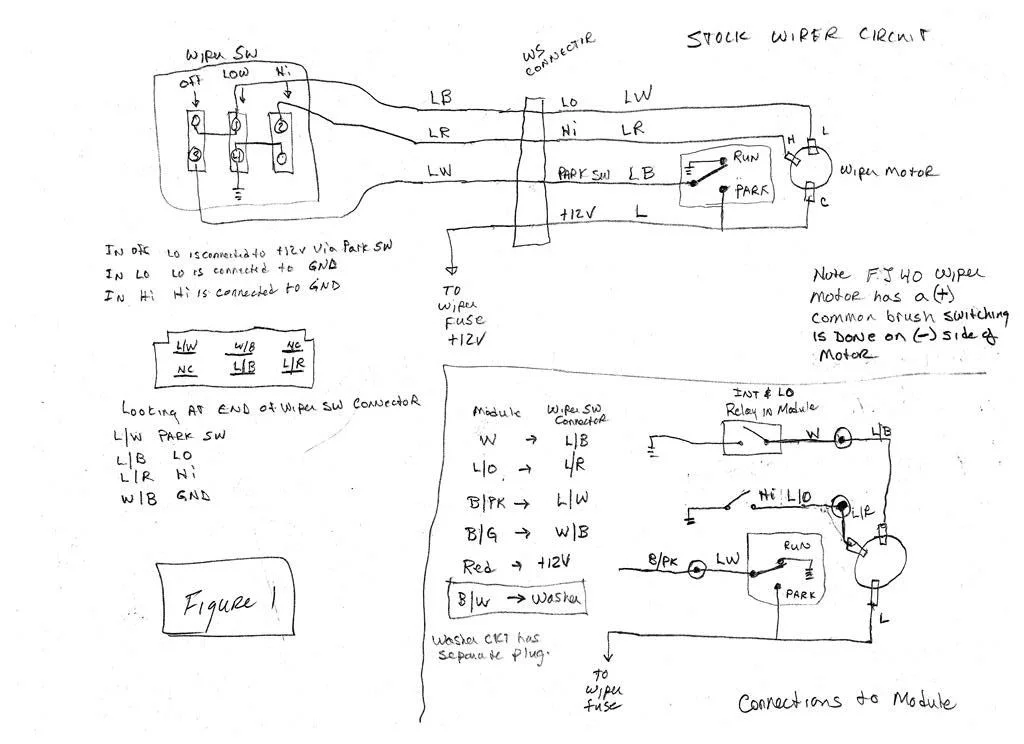 STOCK WIPER CIRCUIT
WIPER SW
OFF LOW Hi
0 1 2
3 4 0
WS CONNECTOR
LB LO LW
LR Hi LR
LW PARK SW LB
+12V L
RUN
PARK
H L
C
WIPER MOTOR
TO
WIPER
FUSE
+12V
IN OFF LO is connected to +12V Via Park SW
IN LO LO is connected to GND
IN Hi Hi is connected to GND
Note FJ40 Wiper
motor has a (+)
common brush switching
is Done on (-) side of
Motor
L/W W/B NC
NC L/B L/R
Looking AT END of Wiper SW Connector
L/W PARK SW
L/B LO
L/R Hi
W/B GND
Figure 1
Module Wiper SW Connector
W → L/B
L/O → L/R
B/PK → L/W
B/G → W/B
Red → +12V
B/W → Washer
Washer CKT has
separate plug.
INT & LO
Relay in Module
W L/B
Hi L/O L/R
B/PK LW
RUN
PARK
L
TO
Wiper
fuse
Connections to Module